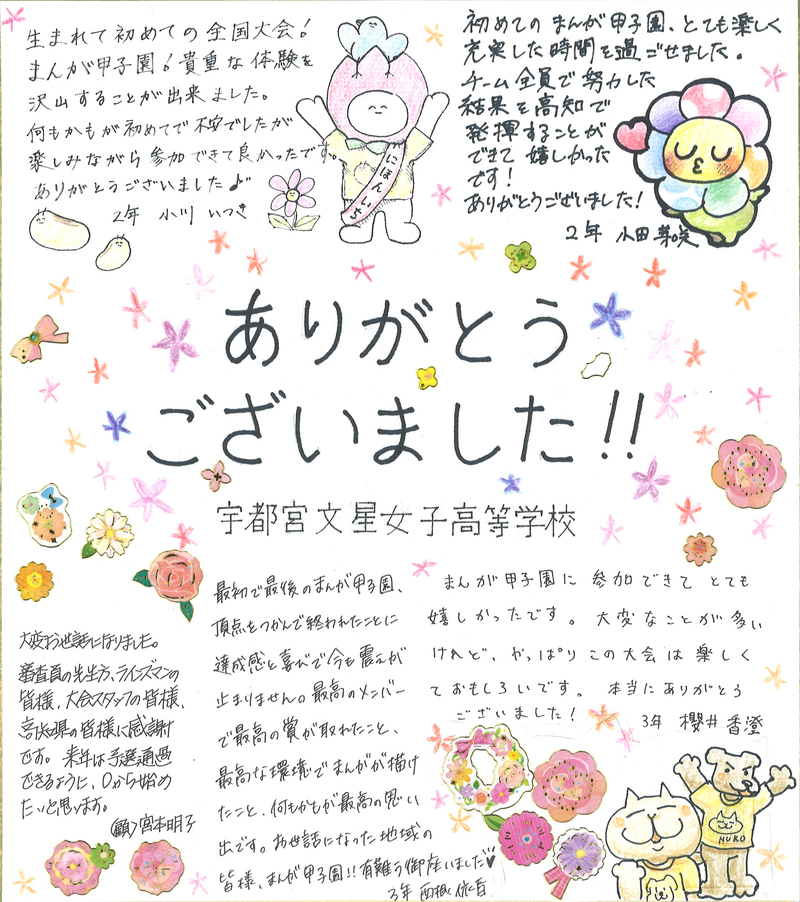 生まれて初めての全国大会!
まんが甲子園!貴重な体験を
沢山することが出来ました。
何もかもが初めてで不安でしたが
楽しみながら参加できて良かったです。
ありがとうございました♪
2年 小川 いつき
にほんいち
初めてのまんが甲子園、とても楽しく
充実した時間を過ごせました。
チーム全員で努力した
結果を高知で
発揮することが
できて嬉しかった
です!
ありがとうございました!
2年 小田 芽咲
ありがとう
ございました!!
宇都宮文星女子高等学校
大変お世話になりました。
審査員の先生方、ラインズマンの
皆様、大会スタッフの皆様、
高知県の皆様に感謝
です。来年は予選通過
できるように、0から始め
たいと思います。
顧) 宮本明子
最初で最後のまんが甲子園、
頂点をつかんで終われたことに
達成感と喜びで今も震えが
止まりません。最高のメンバー
で最高の賞が取れたこと、
最高な環境でまんがが描け
たこと、何もかもが最高の思い
出です。お世話になった地域の
皆様、まんが甲子園!!有難う御座いました♥
3年
まんが甲子園に参加できてとても
嬉しかったです。大変なことが多い
けれど、やっぱりこの大会は楽しく
ておもしろいです。本当にありがとう
ございました!
3年 櫻井 香澄
NUKO